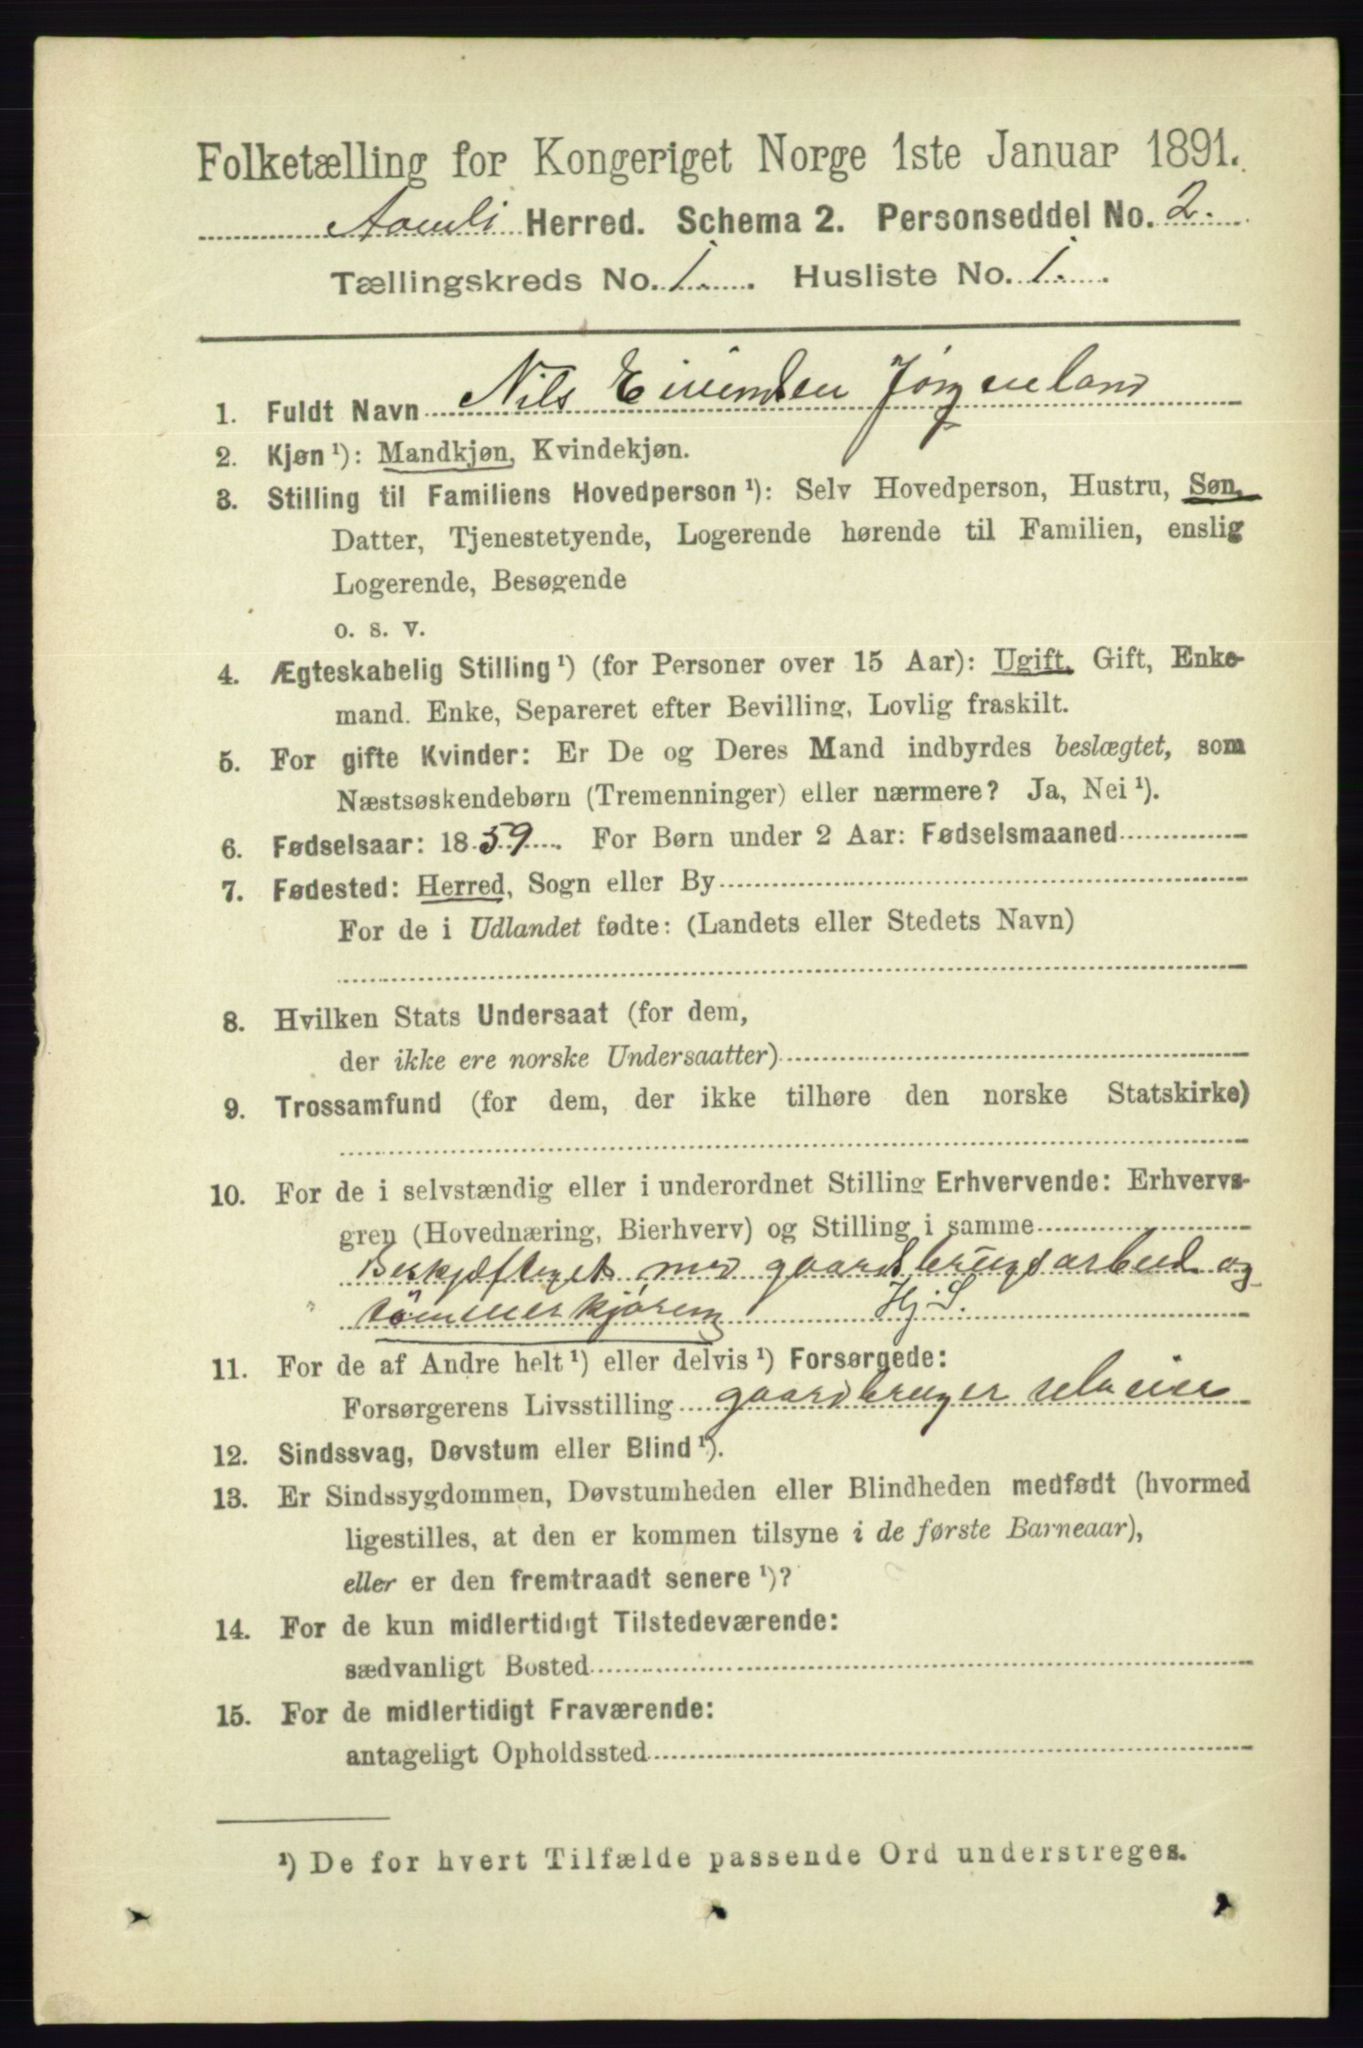 Folketælling for Kongeriget Norge 1ste Januar 1891.
Aamli Herred. Schema 2. Personseddel No. 2.
Tællingskreds No. 1. Husliste No. 1.
1. Fuldt Navn Nils Eivindsen Jørgenland
2. Kjøn ¹): Mandkjøn, Kvindekjøn.
3. Stilling til Familiens Hovedperson ¹): Selv Hovedperson, Hustru, Søn,
Datter, Tjenestetyende, Logerende hørende til Familien, enslig
Logerende, Besøgende
o. s. v.
4. Ægteskabelig Stilling ¹) (for Personer over 15 Aar): Ugift, Gift, Enke-
mand. Enke, Separeret efter Bevilling, Lovlig fraskilt.
5. For gifte Kvinder: Er De og Deres Mand indbyrdes beslægtet, som
Næstsøskendebørn (Tremenninger) eller nærmere? Ja, Nei ¹).
6. Fødselsaar: 1859. For Børn under 2 Aar: Fødselsmaaned
7. Fødested: Herred, Sogn eller By
For de i Udlandet fødte: (Landets eller Stedets Navn)
8. Hvilken Stats Undersaat (for dem,
der ikke ere norske Undersaatter)
9. Trossamfund (for dem, der ikke tilhøre den norske Statskirke)
10. For de i selvstændig eller i underordnet Stilling Erhvervende: Erhvervs-
gren (Hovednæring, Bierhverv) og Stilling i samme
Beskjæftiget med gaardsbrugsarbeid og
tømmerkjøring Hj. S.
11. For de af Andre helt ¹) eller delvis ¹) Forsørgede:
Forsørgerens Livsstilling gaardbruger selveier
12. Sindssvag, Døvstum eller Blind ¹).
13. Er Sindssygdommen, Døvstumheden eller Blindheden medfødt (hvormed
ligestilles, at den er kommen tilsyne i de første Barneaar),
eller er den fremtraadt senere ¹)?
14. For de kun midlertidigt Tilstedeværende:
sædvanligt Bosted
15. For de midlertidigt Fraværende:
antageligt Opholdssted
¹) De for hvert Tilfælde passende Ord understreges.